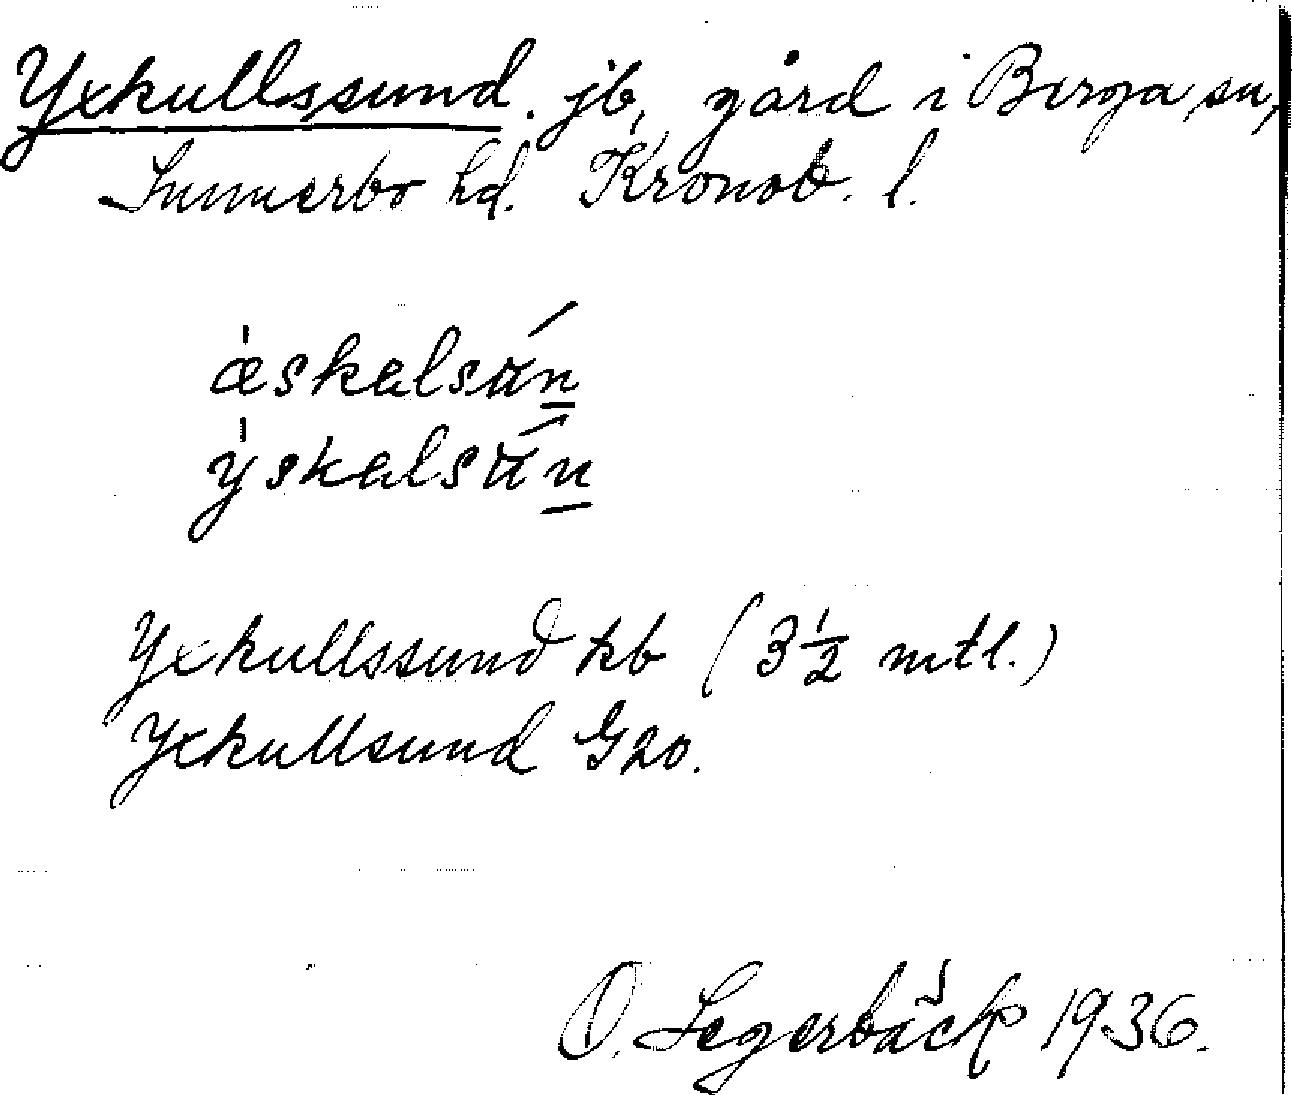 Yxkullssund. jb, gård i Berga sn,
Sunnerbo hd. Kronob. l.
æskalsán
yskalsán
Yxkullssund kb (3 1/2 mtl.)
Yxkullsund G20.
O. Segerbäck 1936.